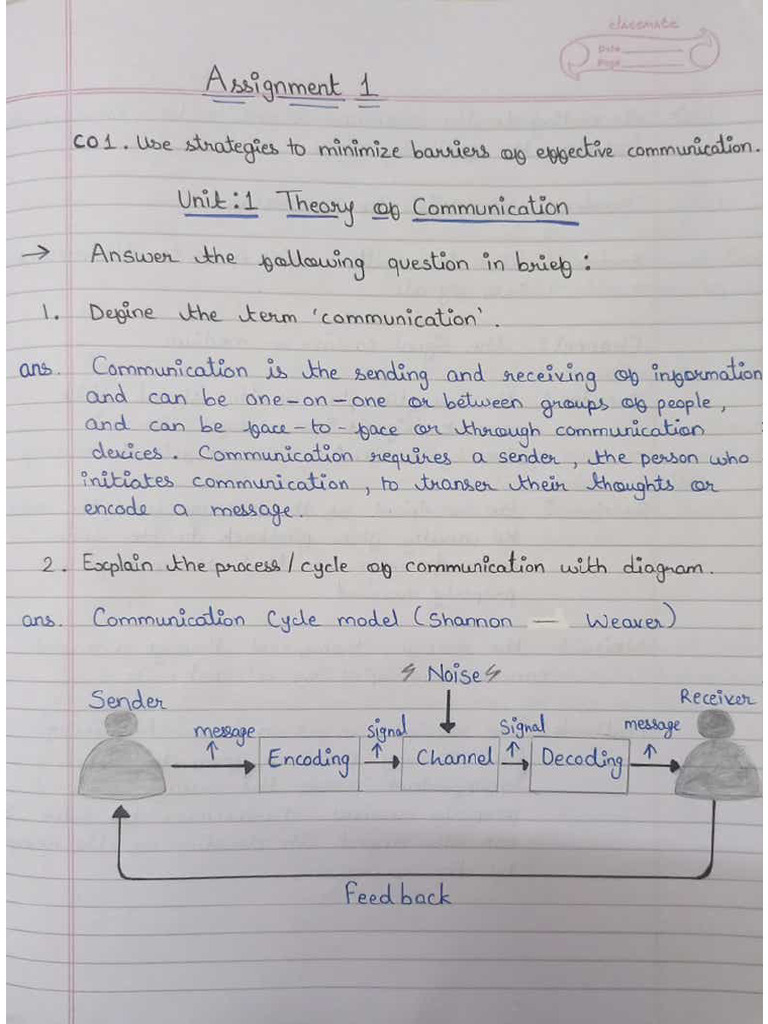 classmate
Date
Page
Assignment 1
CO1. Use strategies to minimize barriers of effective communication.
Unit:1 Theory of Communication
→ Answer the following question in brief:
1. Define the term 'communication'.
ans. Communication is the sending and receiving of information
and can be one-on-one or between groups of people,
and can be face-to-face or through communication
devices. Communication requires a sender, the person who
initiates communication, to transer their thoughts or
encode a message.
2. Explain the process/cycle of communication with diagram.
ans. Communication Cycle model (Shannon — Weaver)
Noise
Sender
Receiver
message
signal
Signal
message
Encoding
Channel
Decoding
Feedback